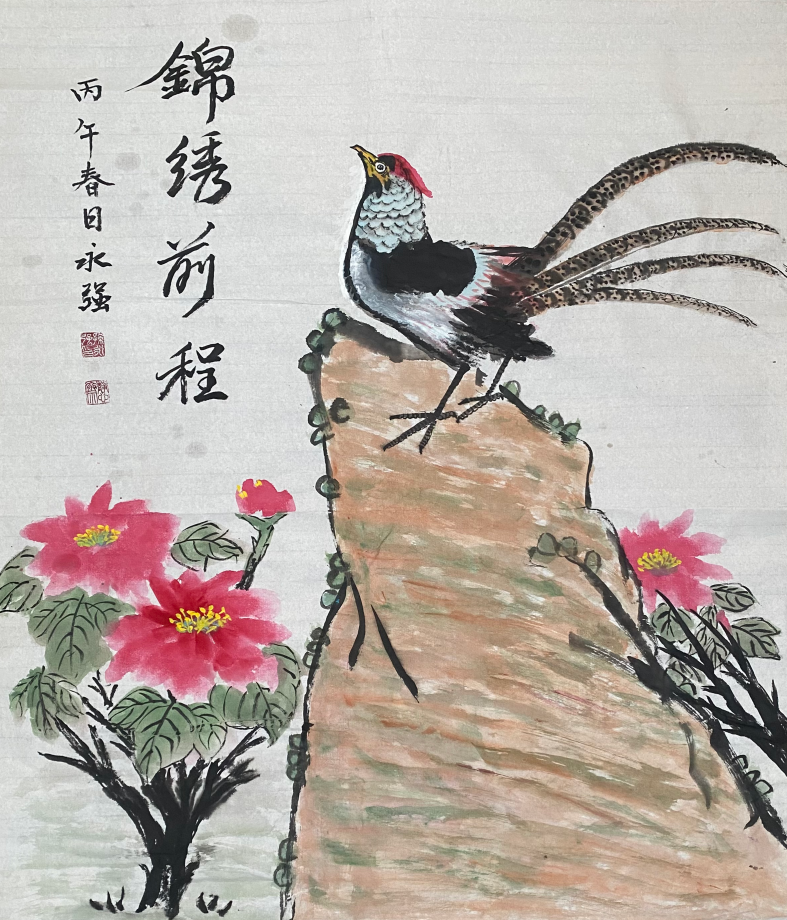 錦绣前程
丙午春日永强